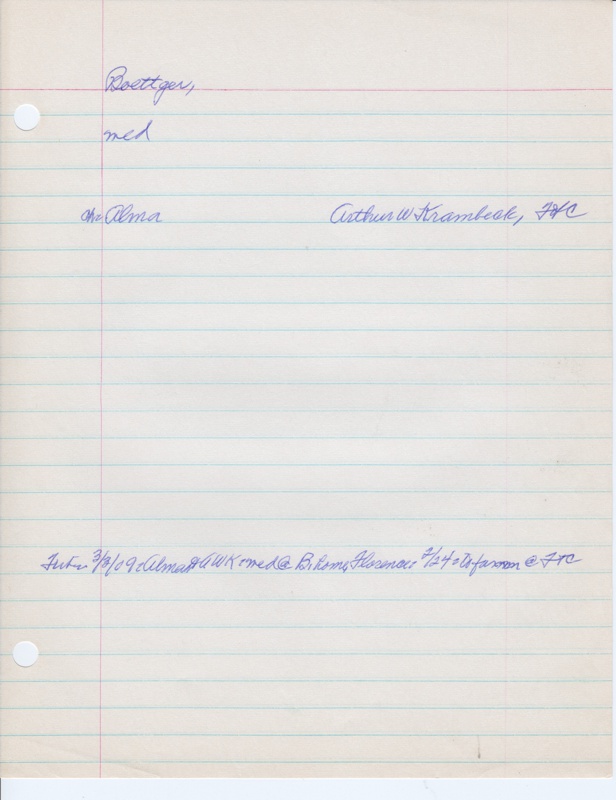 Boettger,
med
ch: Alma Arthur W Krambeck, FtC
3/3/09: Alma & AWK: med @ B. home, Florence: 2/24: to farm on @ FtC